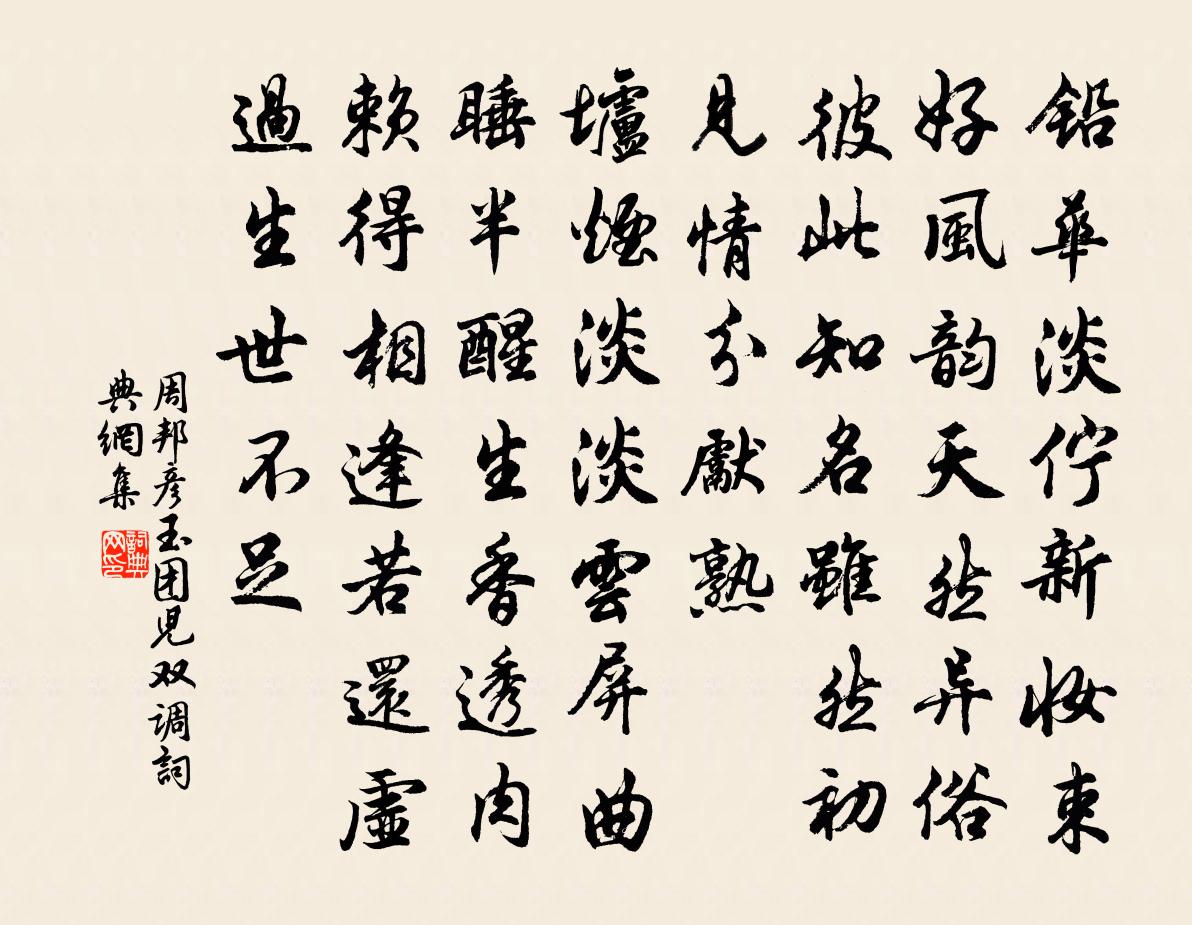 铅華淡佇新妆束
好風韵天然异俗
彼此知名雖然初
見情分獻熟
壚煙淡淡雲屏曲
睡半醒生香透肉
赖得相逢若還虛
過生世不足
周邦彦玉团児双调詞
典網集
詞典网印